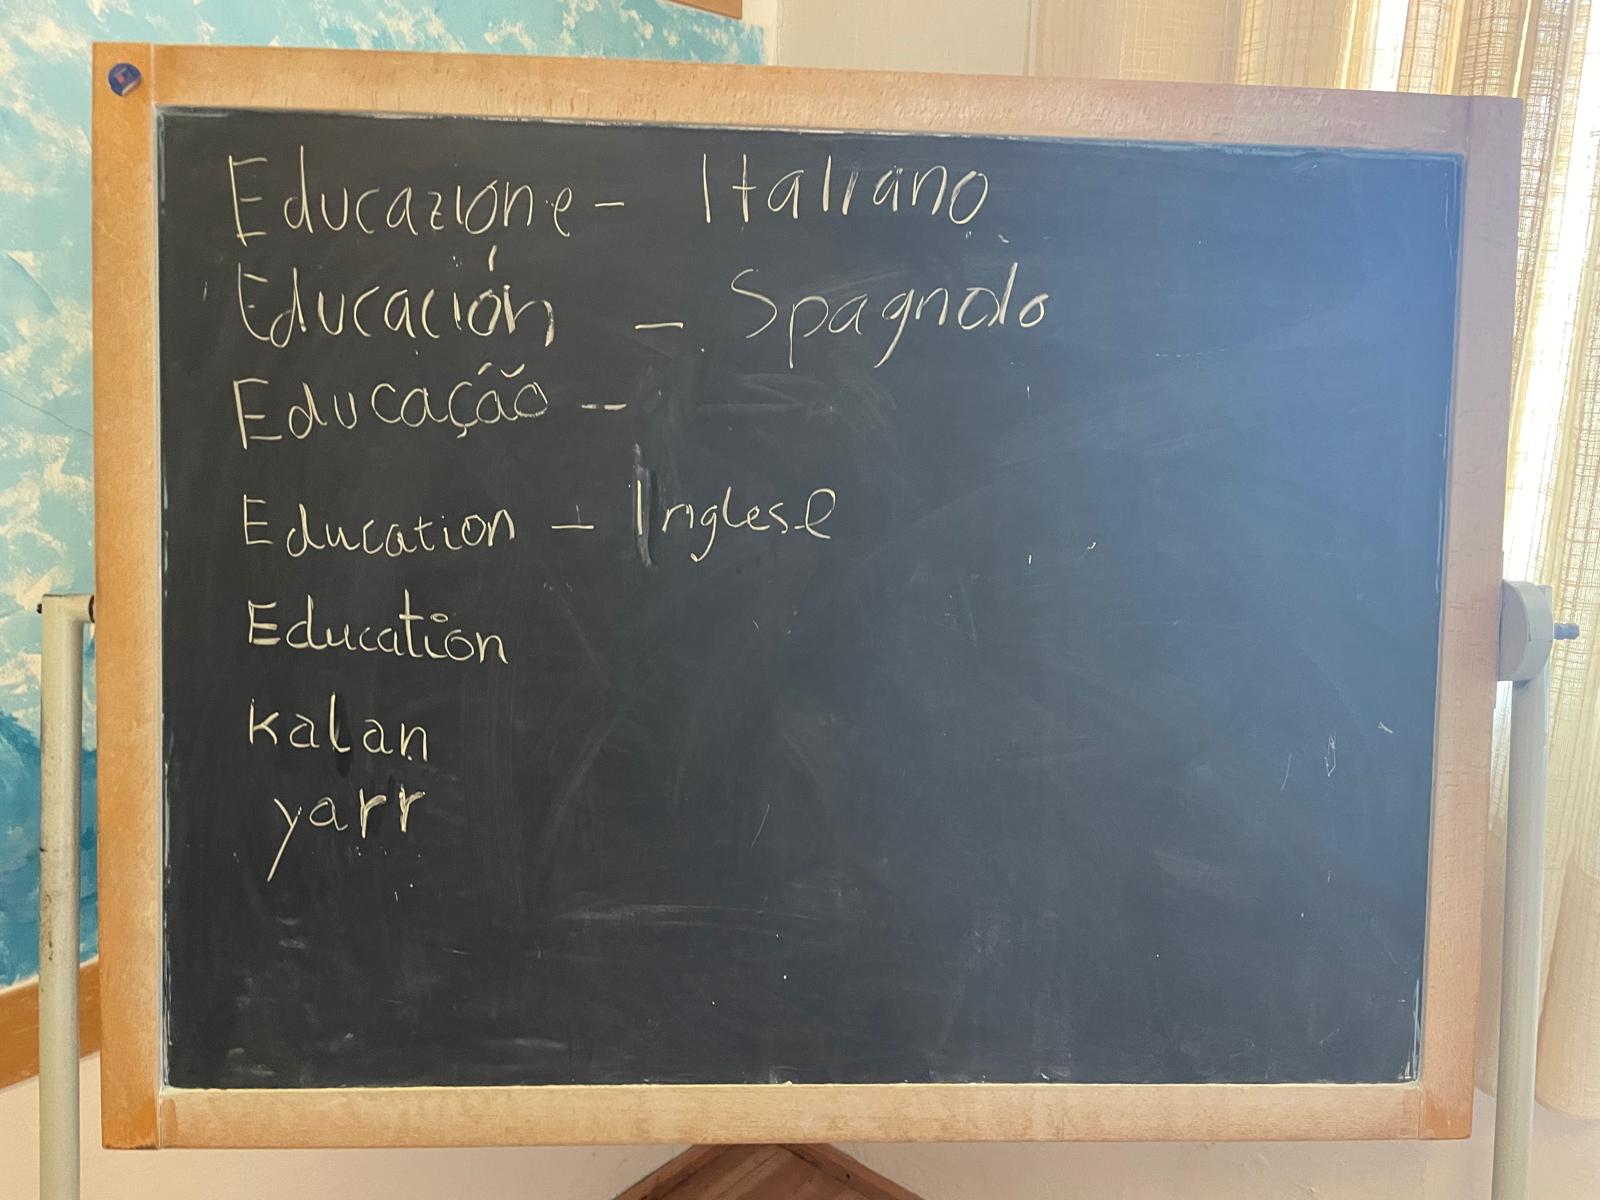 Educazione - Italiano
Educación - Spagnolo
Educação --
Education - Inglese
Education
Kalan
yarr